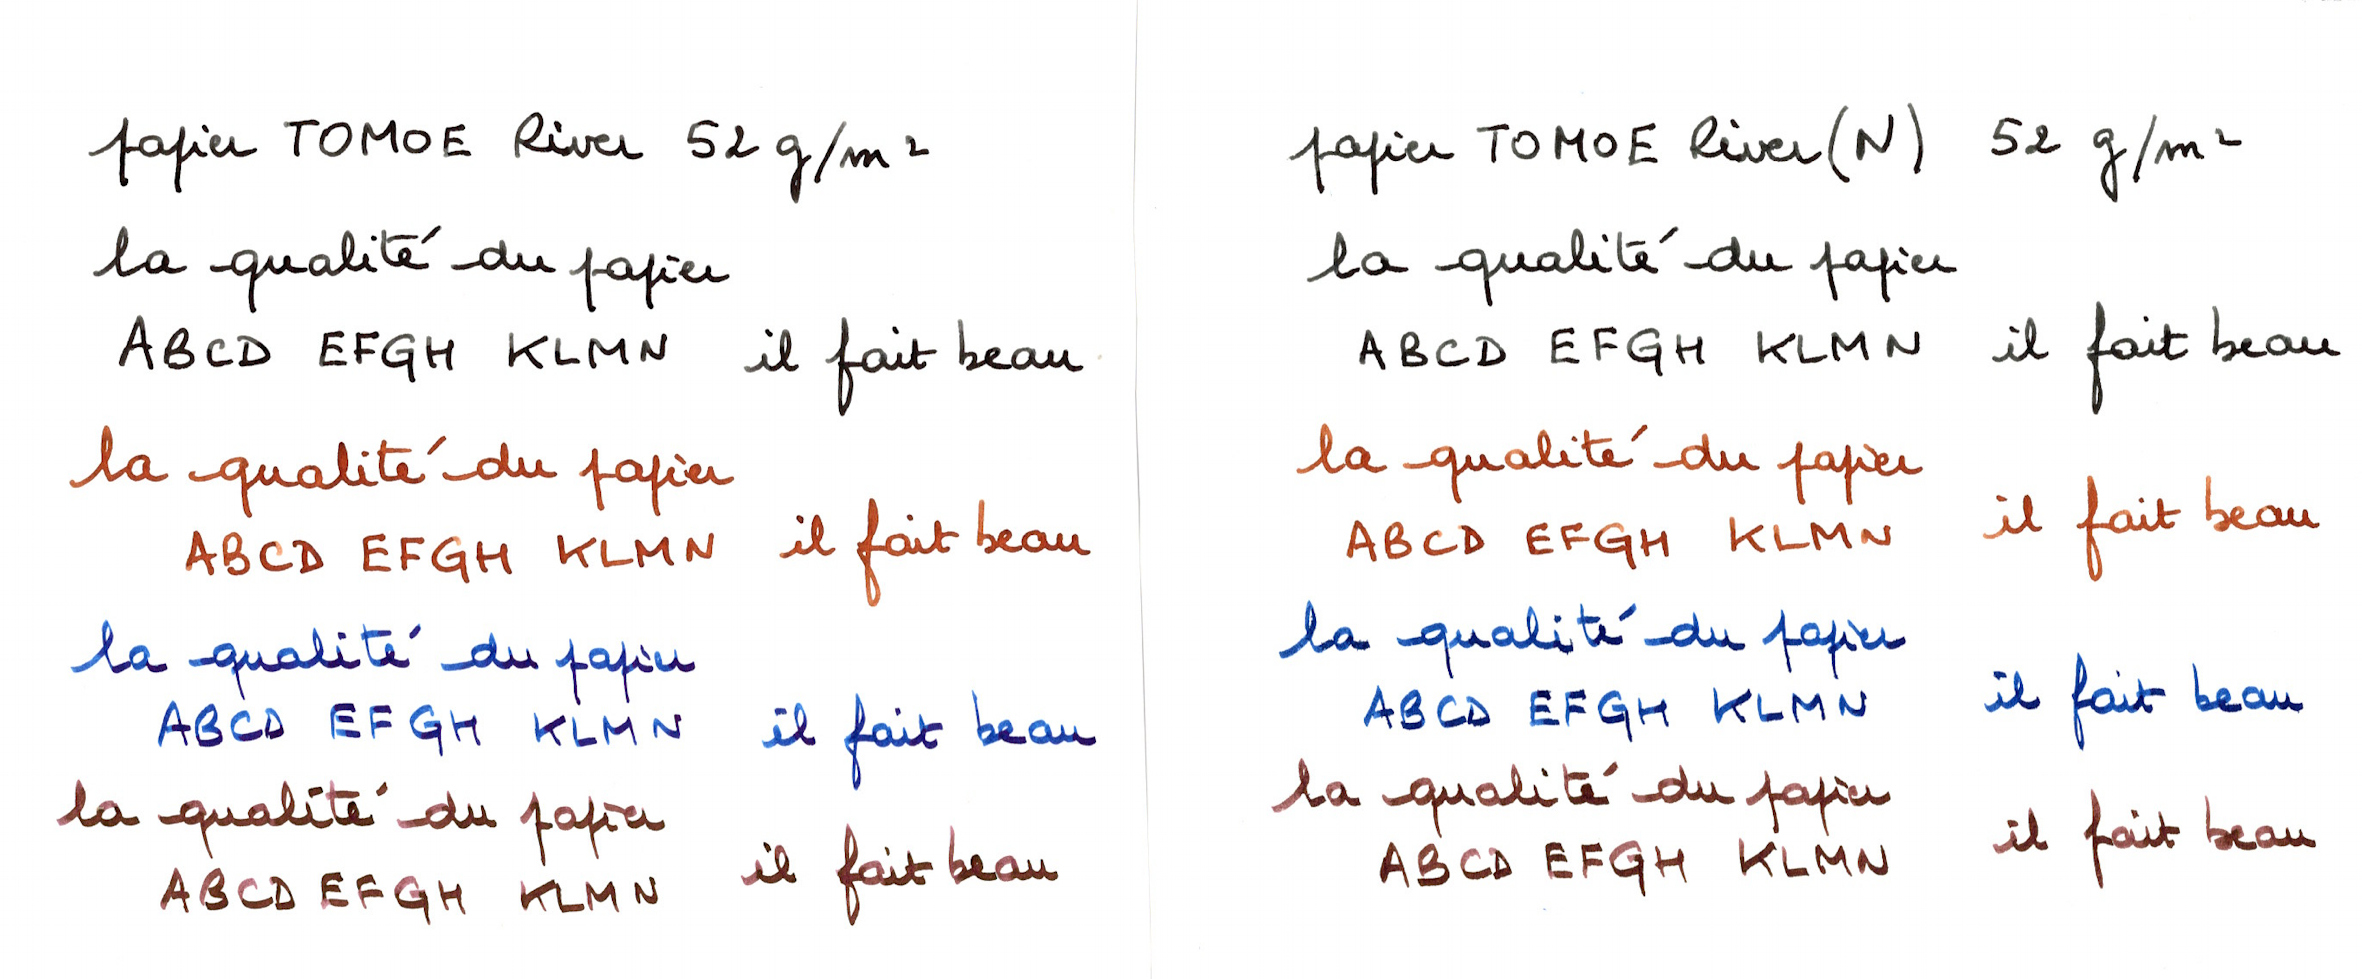 papier TOMOE River 52 g/m²
la qualité du papier
ABCD EFGH KLMN il fait beau
la qualité du papier
ABCD EFGH KLMN il fait beau
la qualité du papier
ABCD EFGH KLMN il fait beau
la qualité du papier
ABCD EFGH KLMN il fait beau
papier TOMOE River (N) 52 g/m²
la qualité du papier
ABCD EFGH KLMN il fait beau
la qualité du papier
ABCD EFGH KLMN il fait beau
la qualité du papier
ABCD EFGH KLMN il fait beau
la qualité du papier
ABCD EFGH KLMN il fait beau